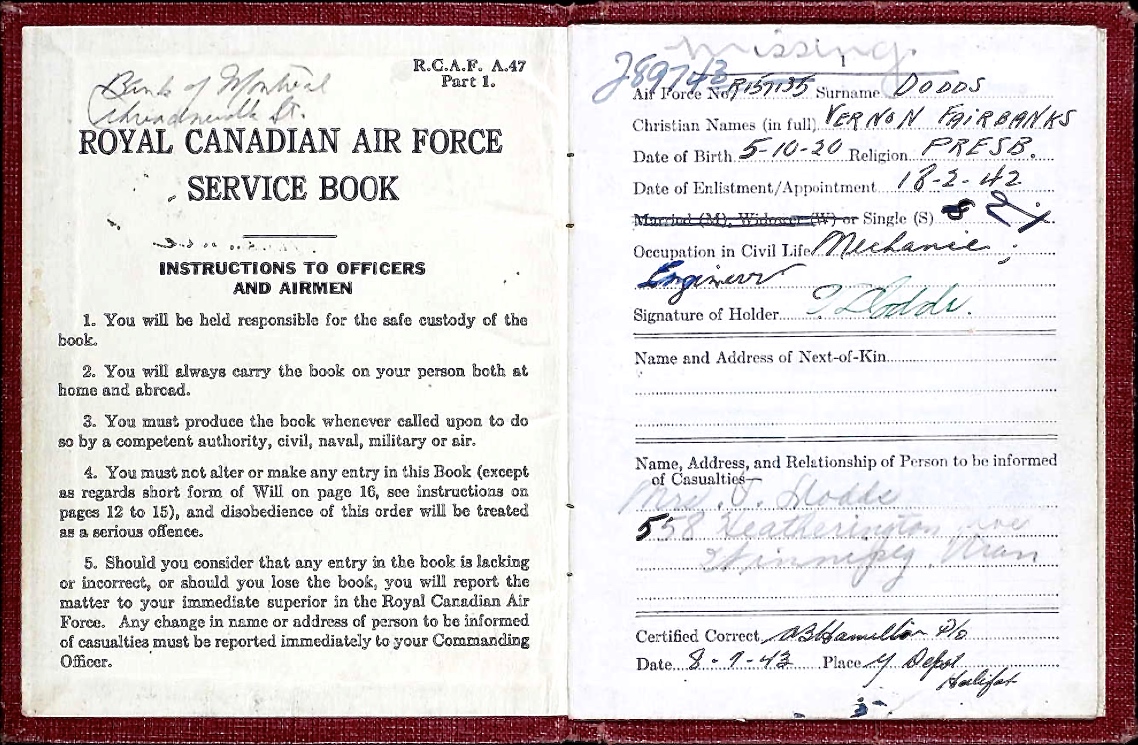 Bank of Montreal
Threadneedle St.
R.C.A.F. A.47
Part 1.
ROYAL CANADIAN AIR FORCE
SERVICE BOOK
INSTRUCTIONS TO OFFICERS
AND AIRMEN
1. You will be held responsible for the safe custody of the
book.
2. You will always carry the book on your person both at
home and abroad.
3. You must produce the book whenever called upon to do
so by a competent authority, civil, naval, military or air.
4. You must not alter or make any entry in this Book (except
as regards short form of Will on page 16, see instructions on
pages 12 to 15), and disobedience of this order will be treated
as a serious offence.
5. Should you consider that any entry in the book is lacking
or incorrect, or should you lose the book, you will report the
matter to your immediate superior in the Royal Canadian Air
Force. Any change in name or address of person to be informed
of casualties must be reported immediately to your Commanding
Officer.
missing.
1
J89743
Air Force No. R157135 Surname DODDS
Christian Names (in full) VERNON FAIRBANKS
Date of Birth 5-10-20 Religion PRESB.
Date of Enlistment/Appointment 18-2-42
Married (M), Widower (W) or Single (S)
Occupation in Civil Life Mechanic
Engineer
Signature of Holder Dodds.
Name and Address of Next-of-Kin
Name, Address, and Relationship of Person to be informed
of Casualties—
Mrs. J. Dodds
558 Heatherington Ave
Winnipeg Man
Certified Correct Hamilton P/o
Date 8-7-43 Place Y Depot
Halifax